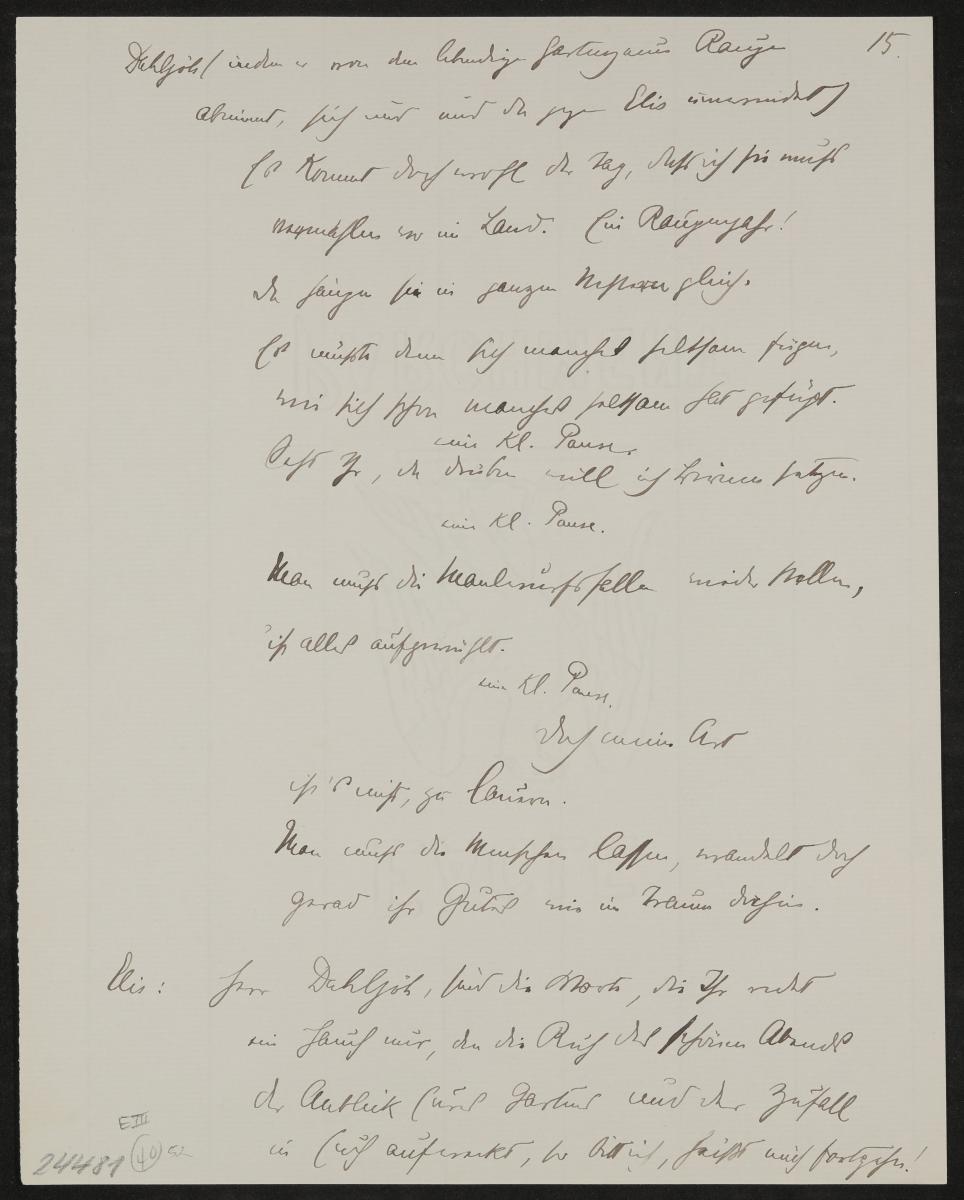 15.
Dahlsjöh (indem er von dem lebendigen Gartenzaun Raupen
abnimmt, sich und und da gegen Elis umwendet)
Es kommt doch wohl der Tag, daß ich sie muß
so im Land. Ein Raupenjahr!
da hängen sie in ganzen Nestern gleich.
Es müßte denn sich manches seltsam fügen,
wie sich schon manches seltsam hat gefügt.
eine kl. Pause.
Seht Ihr, da drüben will ich Birnen setzen.
eine kl. Pause.
Man muß die Maulwurfsfallen wieder stellen,
's ist alles aufgewühlt.
eine kl. Pause.
Doch meine Art
ist's nicht, zu lauern.
Man muß die Menschen lassen, wandelt doch
gerad ihr Gutes wie im Traum dahin.
Elis: Herr Dahlsjöh, sind die Worte, die Ihr redet
ein Hauch nur, den die Ruh des schönen Abends
der Anblick Eures Gartens und der Zufall
in Euch aufweckt, so bitt ich, heißt mich fortgehn!
E III
24481 40 52